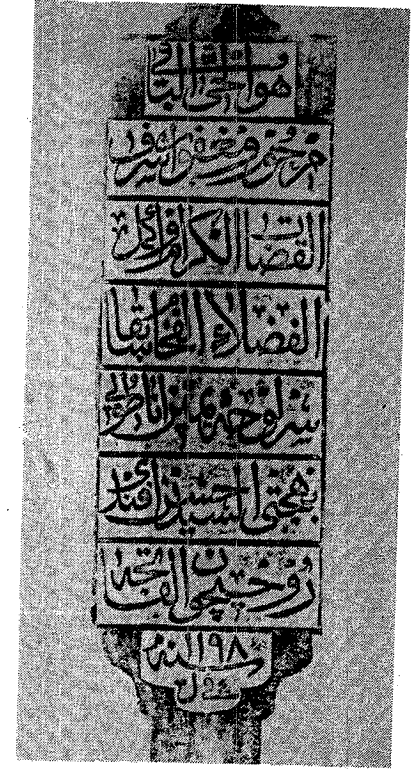 هو الحي الباقي
مرحوم و مغفور اشرف
القضات الكرام اكمل
الفضلاء الفخام سابقا
اناطولي
بهجتى السيد حسن افندى
روحيچون الفاتحه
سنه ١١٩٨